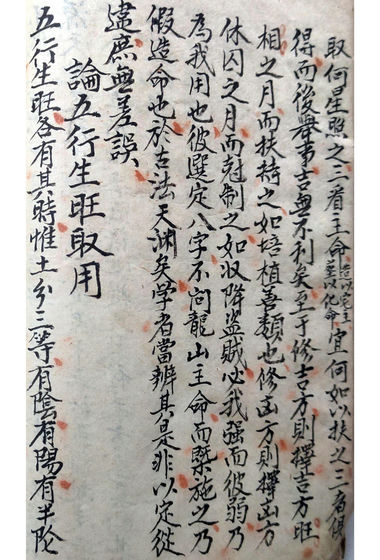 取何星照之二看主命造以宅主葬以化命宜何如以扶之三者俱
得而後舉事吉無不利矣至于修吉方則擇吉方旺
相之月而扶持之如培植善類也修凶方則擇凶方
休囚之月而尅制之如收降盜賊必我强而彼弱乃
為我用也彼選定八字不问龍山主命而槩施之乃
假造命也於古法天渊矣学者當辨其是非以定從
違庶無差誤
論五行生旺取用
五行生旺各有其時惟土分三等有陰有陽有半陰